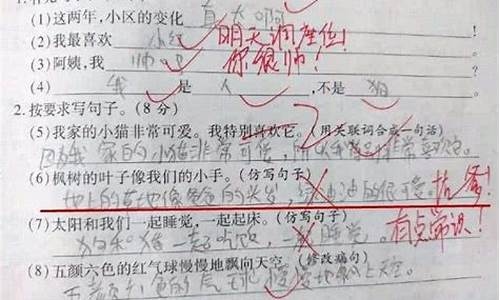 (1)这两年,小区的变化 真大啊
(2)我最喜欢 小红 明天调座位!
(3)阿姨,我 帅吧 你很帅!
(4) 我 是 人 ,不是 狗
2.按要求写句子。(8 分)
(5)我家的小猫非常可爱。我特别喜欢它。(用关联词合成一句话)
因为我家的小猫非常可爱,所以我特别非常喜欢它。
(6)枫树的叶子像我们的小手。(仿写句子)
地上的草地像爸爸的头发,绿油油的很可爱。
(7)太阳和我们一起睡觉,一起起床。(仿写句子)
狗和猪一起吃饭,一起睡觉。 有点常识!
(8)五颜六色的红气球慢慢地飘向天空。(修改病句)
五颜六色的气球慢慢地飘上天空。